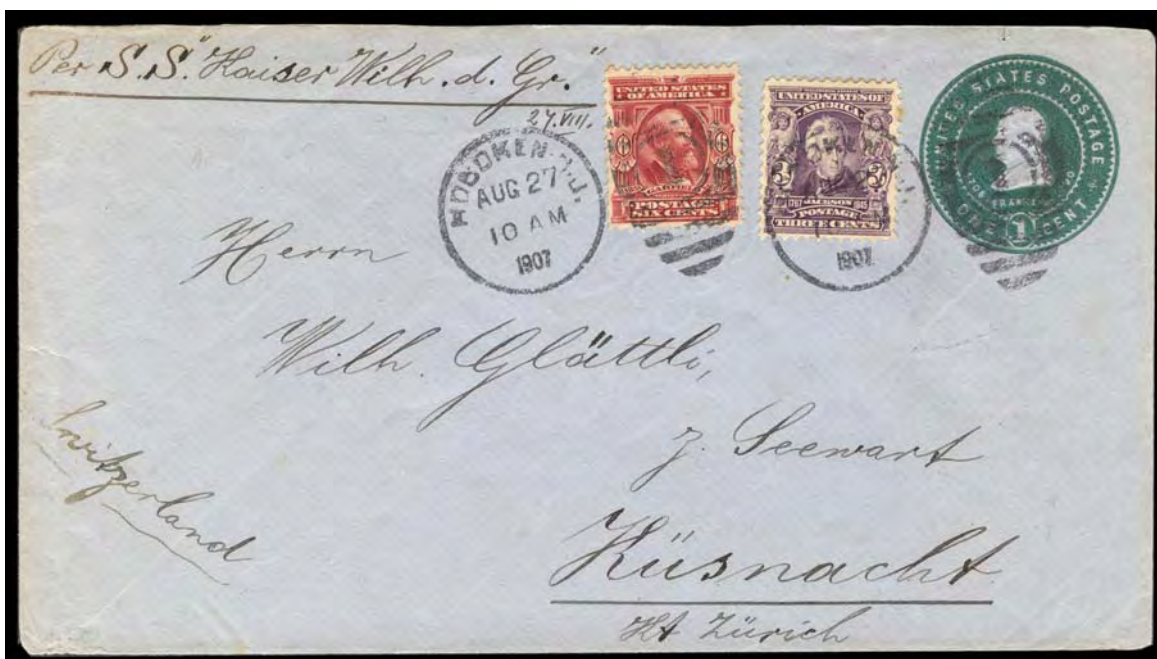 Per S.S. "Kaiser Wilh. d. Gr."
27.VIII.
HOBOKEN, N.J.
AUG 27
10 AM
1907
UNITED STATES
OF AMERICA
6 6
GARFIELD
POSTAGE
SIX CENTS
UNITED STATES OF
AMERICA
3 3
1767 JACKSON 1845
POSTAGE
THREE CENTS
1907
UNITED STATES POSTAGE
FRANKLIN
ONE 1 CENT
Herrn
Wilh. Glättli,
z. Seewart
Küsnacht
Kt Zürich
Switzerland